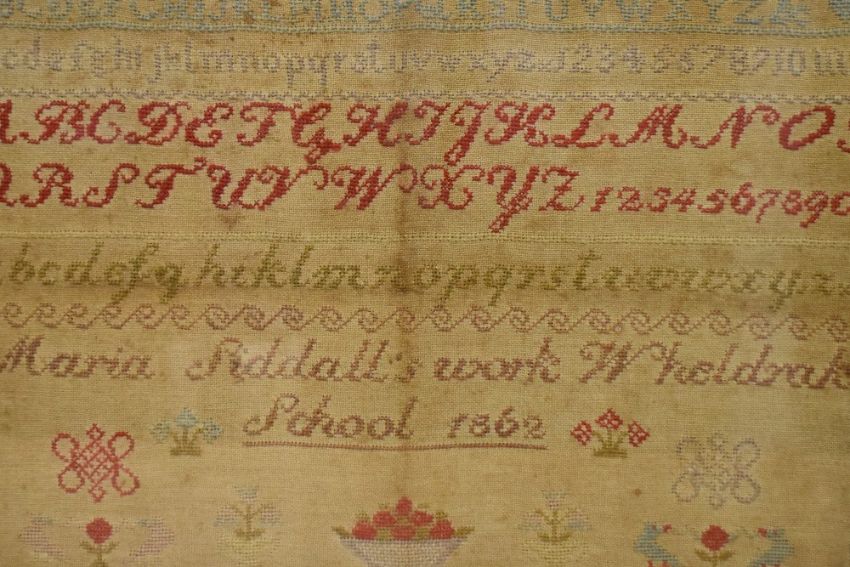 abcdefghijklmnopqrstuvwxyz 12345678910
ABCDEFGHIJKLMNO
RSTUVWXYZ 1234567890
bcdefghiklmnopqrstuvwxyz
Maria Siddall's work Wheldrak
School 1862